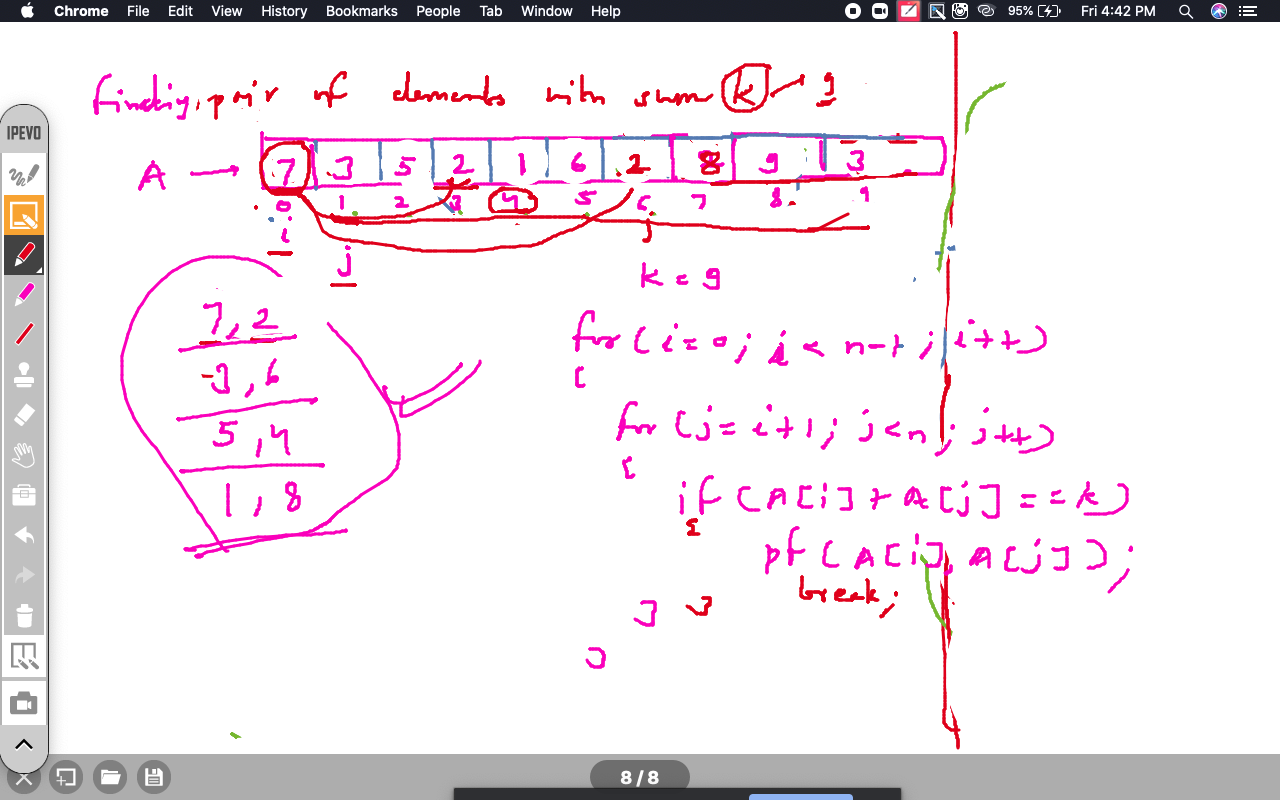 Chrome File Edit View History Bookmarks People Tab Window Help 95% Fri 4:42 PM
IPEVO
finding pair of elements with sum k 9
A → 7 3 5 2 1 6 2 8 9 3
0 1 2 3 4 5 6 7 8 9
i j
j
k = 9
7, 2
3, 6
5, 4
1, 8
for (i=0; i < n-1; i++)
{
for (j=i+1; j<n; j++)
{
if (A[i]+A[j]==k)
{
pf(A[i], A[j]);
break;
} }
}
8 / 8